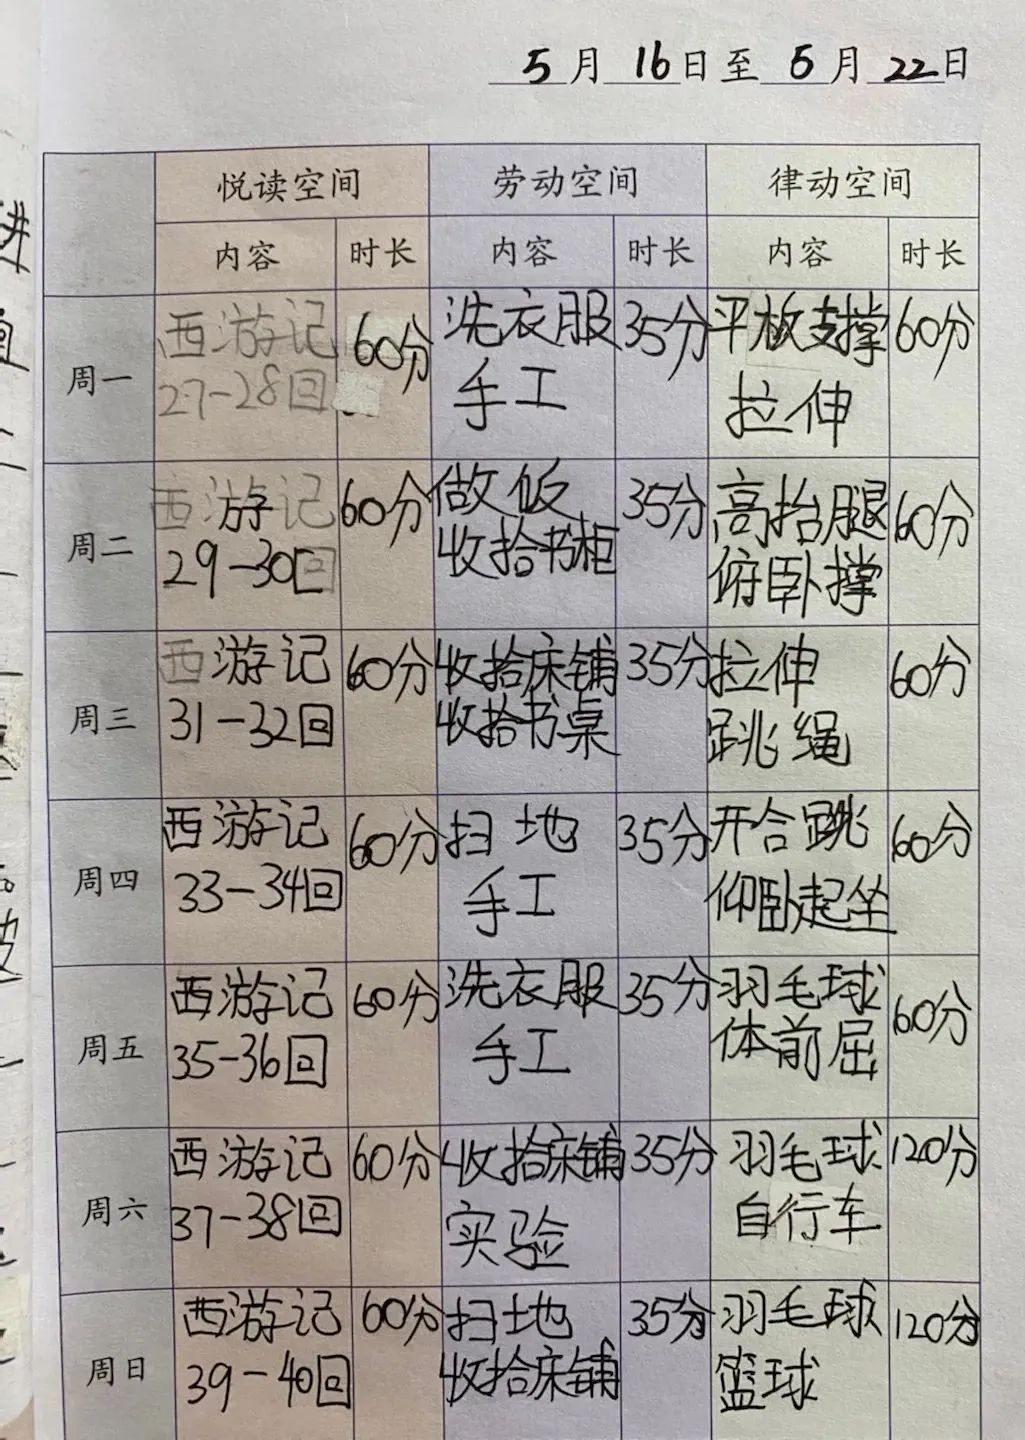 5月16日至5月22日
悦读空间 劳动空间 律动空间
内容 时长 内容 时长 内容 时长
周一 西游记 27-28回 60分 洗衣服 手工 35分 平板支撑 拉伸 60分
周二 西游记 29-30回 60分 做饭 收拾书柜 35分 高抬腿 俯卧撑 60分
周三 西游记 31-32回 60分 收拾床铺 收拾书桌 35分 拉伸 跳绳 60分
周四 西游记 33-34回 60分 扫地 手工 35分 开合跳 仰卧起坐 60分
周五 西游记 35-36回 60分 洗衣服 手工 35分 羽毛球 体前屈 60分
周六 西游记 37-38回 60分 收拾床铺 实验 35分 羽毛球 自行车 120分
周日 西游记 39-40回 60分 扫地 收拾床铺 35分 羽毛球 篮球 120分